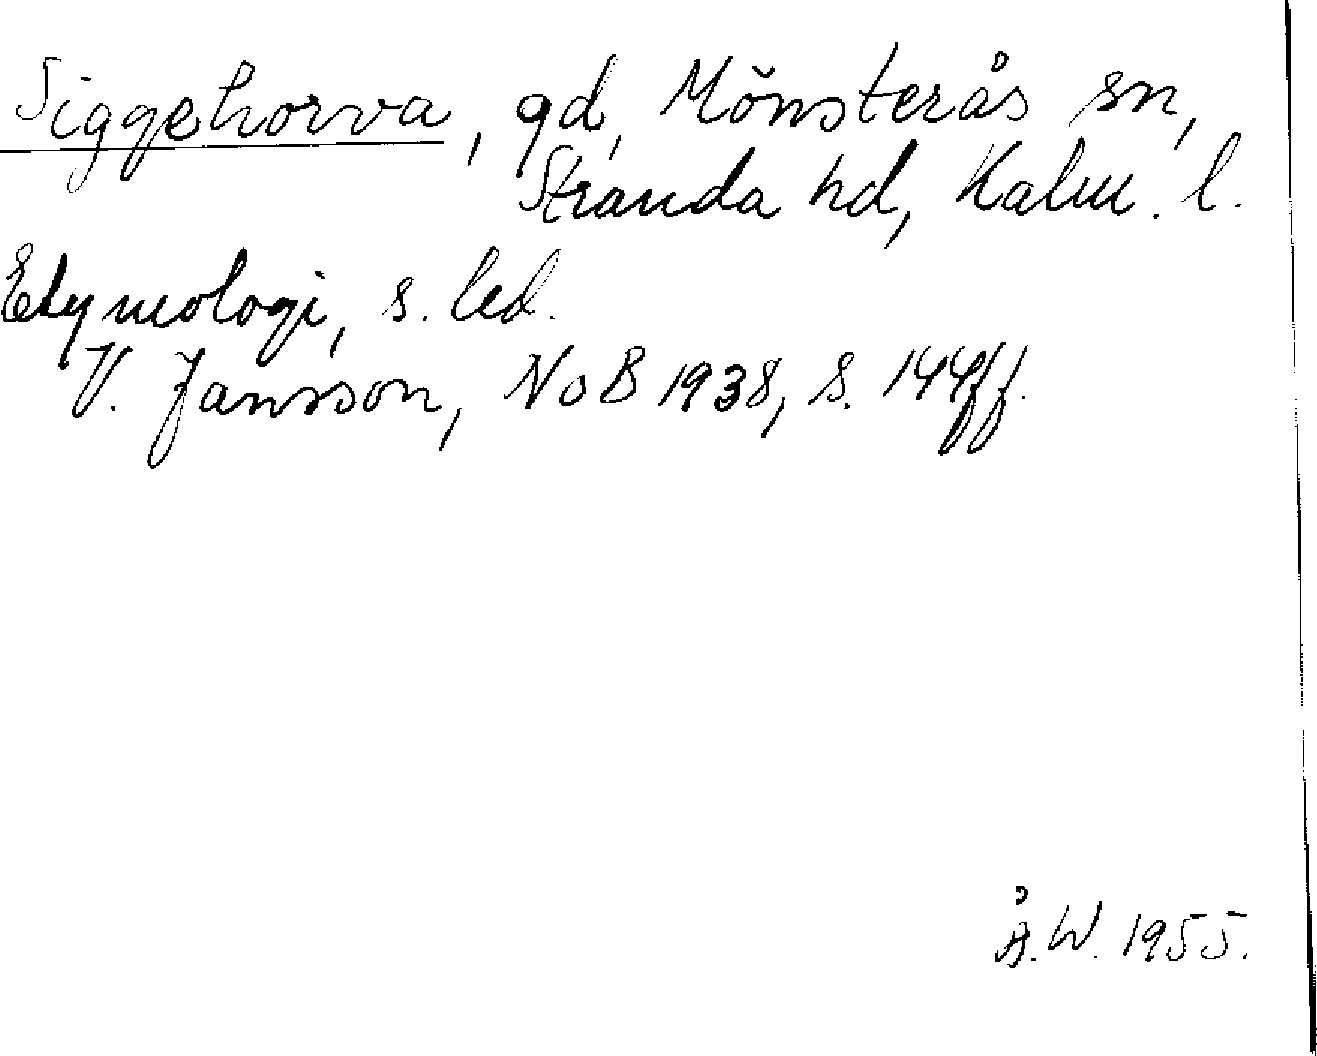 Siggehorva, gd, Mönsterås sn,
Stranda hd, Kalm. l.
Etymologi, s. led.
V. Jansson, NoB 1938, s. 144ff.
Å.W. 1955.